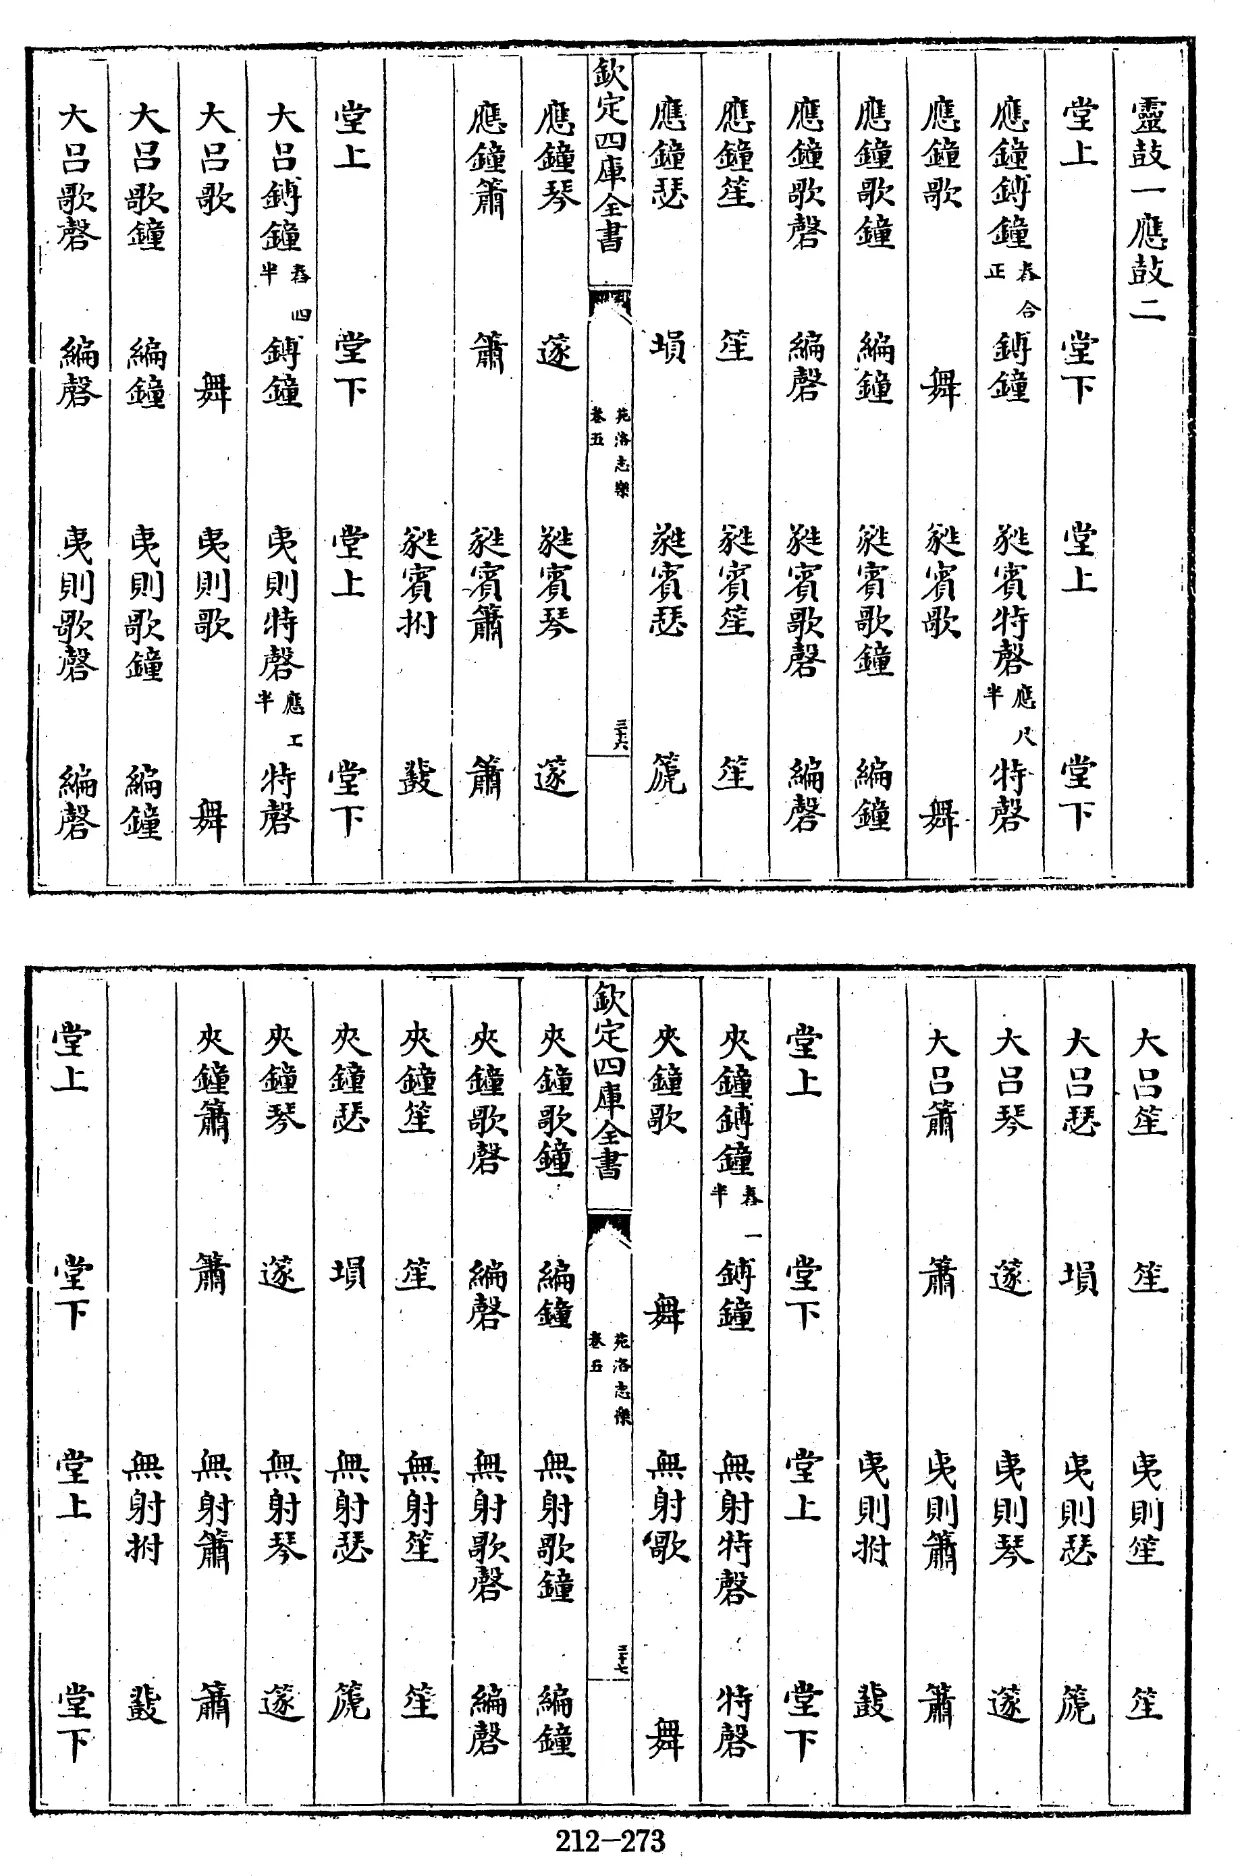 靈鼓一應鼓二
堂上 堂下 堂上 堂下
應鐘鎛鐘春正合 鎛鐘 蕤賓特磬應半尺 特磬
應鐘歌 舞 蕤賓歌 舞
應鐘歌鐘 編鐘 蕤賓歌鐘 編鐘
應鐘歌磬 編磬 蕤賓歌磬 編磬
應鐘笙 笙 蕤賓笙 笙
應鐘瑟 塤 蕤賓瑟 篪
欽定四庫全書 苑洛志樂卷五 三十六
應鐘琴 篴 蕤賓琴 篴
應鐘簫 簫 蕤賓簫 簫
蕤賓拊 鼗
堂上 堂下 堂上 堂下
大呂鎛鐘春半四 鎛鐘 夷則特磬應半工 特磬
大呂歌 舞 夷則歌 舞
大呂歌鐘 編鐘 夷則歌鐘 編鐘
大呂歌磬 編磬 夷則歌磬 編磬
大呂笙 笙 夷則笙 笙
大呂瑟 塤 夷則瑟 篪
大呂琴 篴 夷則琴 篴
大呂簫 簫 夷則簫 簫
夷則拊 鼗
堂上 堂下 堂上 堂下
夾鐘鎛鐘春半一 鎛鐘 無射特磬 特磬
夾鐘歌 舞 無射歌 舞
欽定四庫全書 苑洛志樂卷五 三十七
夾鐘歌鐘 編鐘 無射歌鐘 編鐘
夾鐘歌磬 編磬 無射歌磬 編磬
夾鐘笙 笙 無射笙 笙
夾鐘瑟 塤 無射瑟 篪
夾鐘琴 篴 無射琴 篴
夾鐘簫 簫 無射簫 簫
無射拊 鼗
堂上 堂下 堂上 堂下
212-273